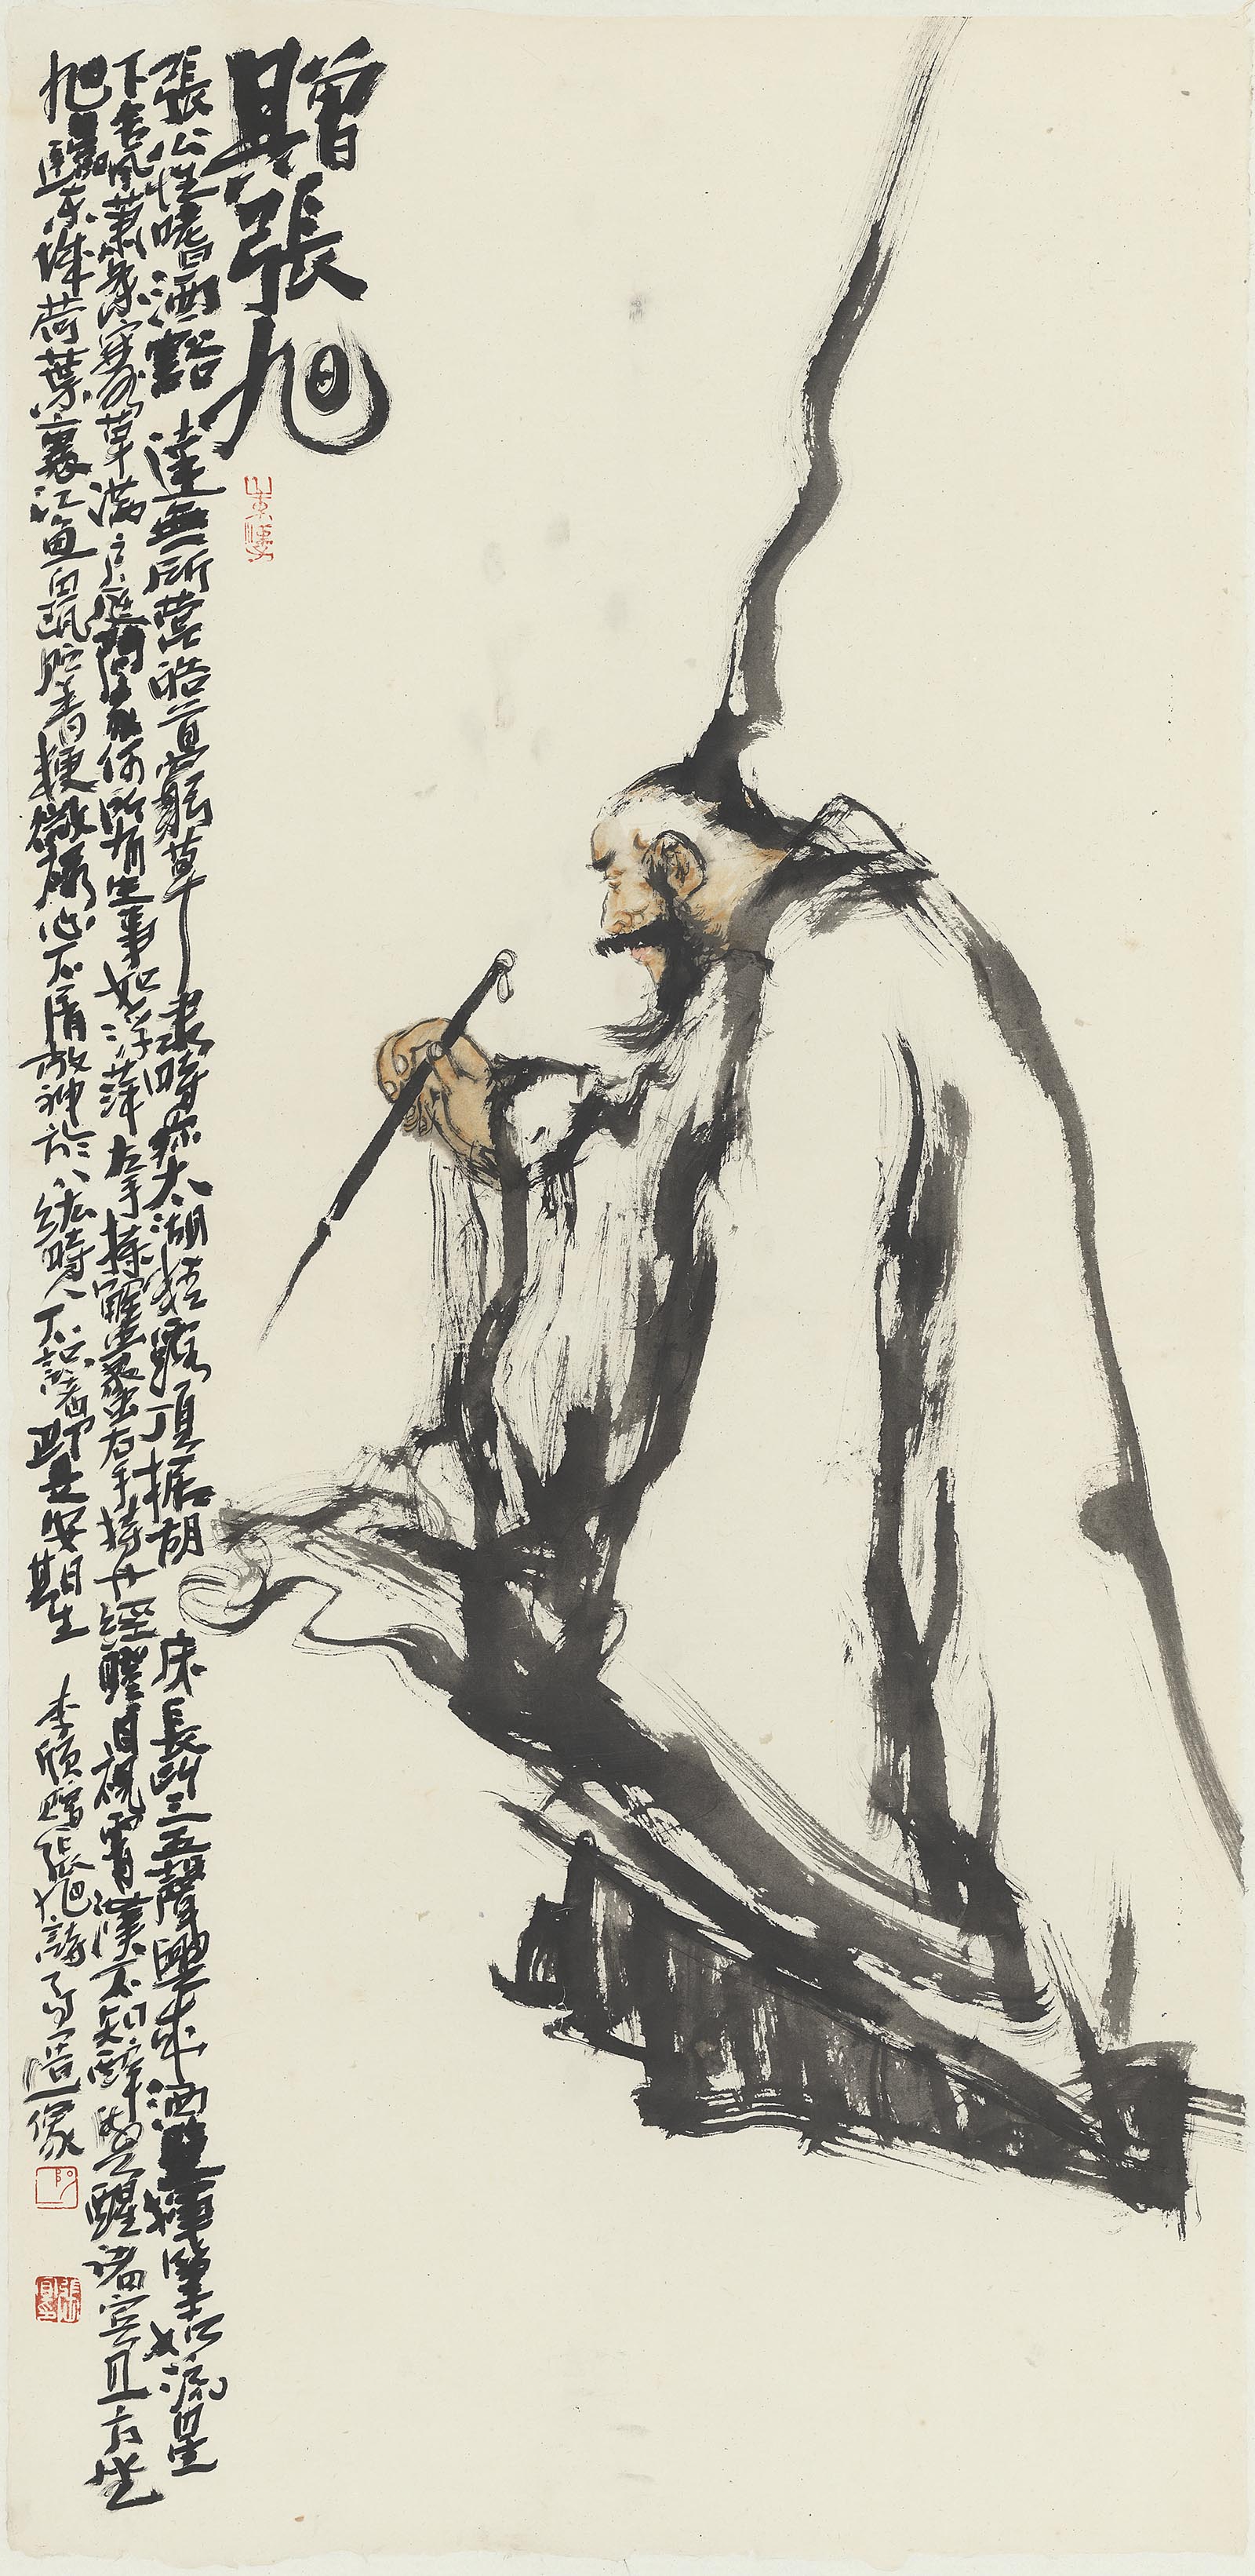 贈張旭
山東漢子
張公性嗜酒豁達無所營皓首窮草隸時称太湖精露頂據胡床長叫三五聲興來洒壁揮筆如流星
下舍風蕭條寒草滿戶庭問家何所有生事如浮萍左手持蟹螯右手持丹經瞪目視霄漢不知醉與醒諸賓且方坐
旭日臨東城荷葉裹江魚白甌貯香粳微祿心不屑放神於八紘時人不識者即是安期生 李頎贈張旭詩 造像